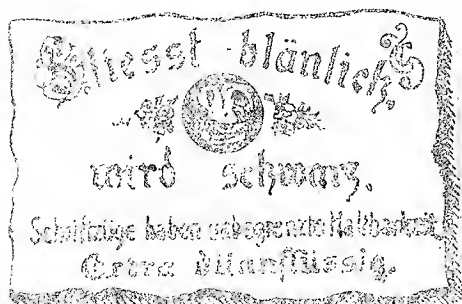 Fliesst bläulich,
wird schwarz.
Schriftzüge haben unbegrenzte Haltbarkeit.
Extra dünnflüssig.